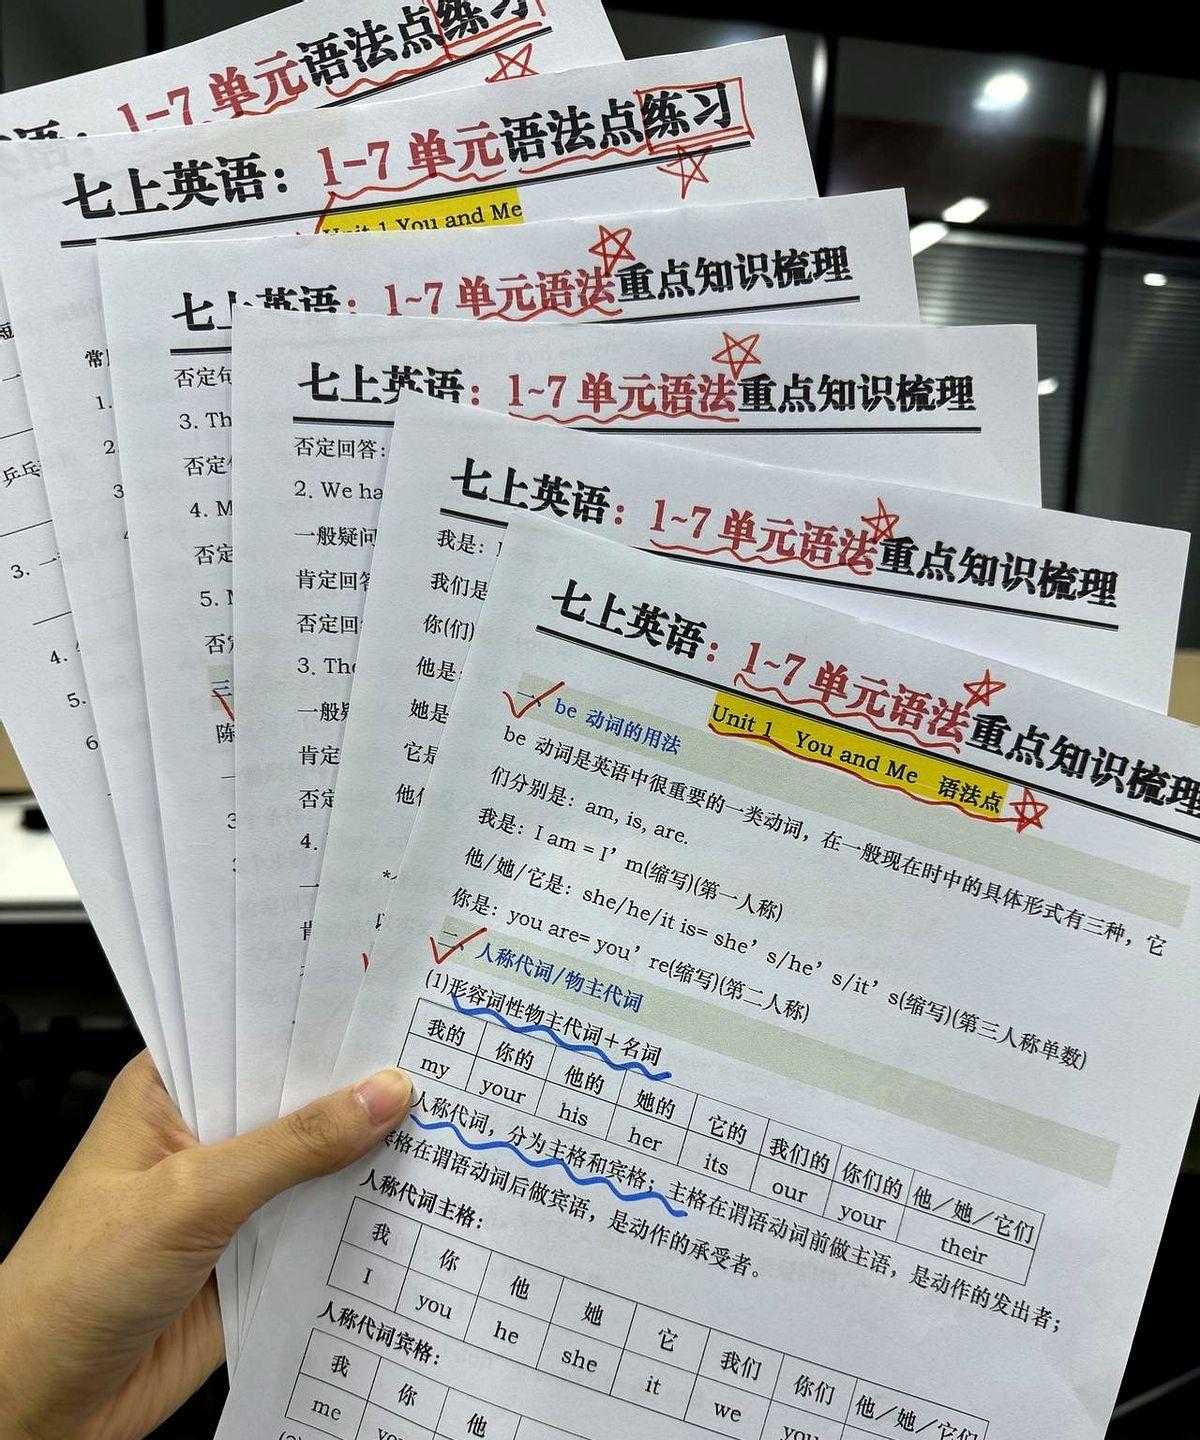 1-7 单元语法点练习
七上英语：1-7 单元语法点练习
Unit 1 You and Me
常
1.
2
3
3.
4.
5.
6
七上英语：1~7 单元语法重点知识梳理
否定句
3. Th
否定
4. M
否定
5.
否
三
陈
七上英语：1~7 单元语法重点知识梳理
否定回答：
2. We ha
一般疑问
肯定回答
否定回
3. The
一般
肯定
否定
4.
七上英语：1~7 单元语法重点知识梳理
我是：
我们是
你(们)
他是
她是
它是
他们
七上英语：1~7 单元语法重点知识梳理
Unit 1 You and Me 语法点
一、be 动词的用法
be 动词是英语中很重要的一类动词，在一般现在时中的具体形式有三种，它
们分别是：am, is, are.
我是：I am = I’m(缩写)(第一人称)
他/她/它是：she/he/it is= she’s/he’s/it’s(缩写)(第三人称单数)
你是：you are= you’re(缩写)(第二人称)
二、人称代词/物主代词
(1)形容词性物主代词＋名词
我的 你的 他的 她的 它的 我们的 你们的 他／她／它们
my your his her its our your their
人称代词，分为主格和宾格；主格在谓语动词前做主语，是动作的发出者；
宾格在谓语动词后做宾语，是动作的承受者。
人称代词主格：
我 你 他 她 它 我们 你们 他／她／它们
I you he she it we you
人称代词宾格：
我 你 他
me you